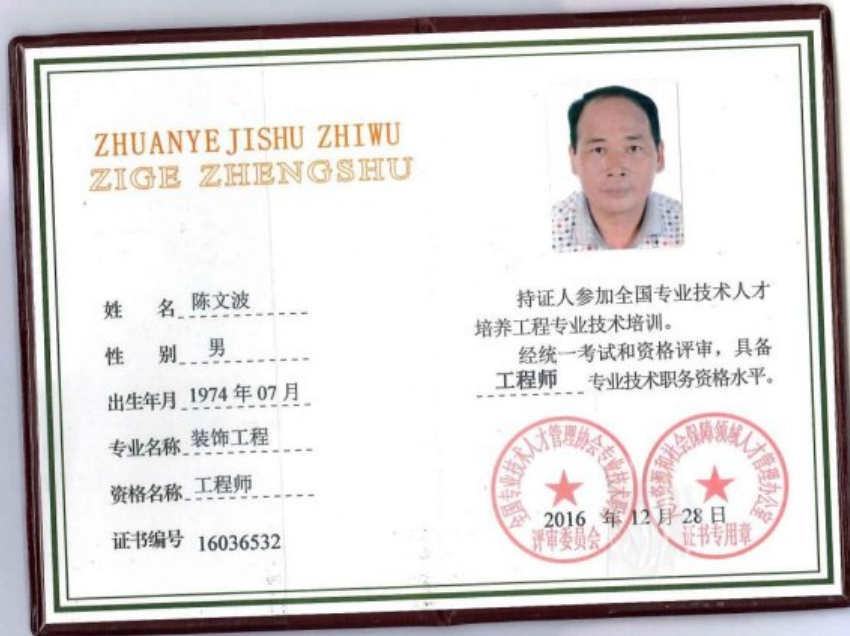 ZHUANYE JISHU ZHIWU
ZIGE ZHENGSHU
姓 名 陈文波
性 别 男
出生年月 1974 年 07 月
专业名称 装饰工程
资格名称 工程师
证书编号 16036532
持证人参加全国专业技术人才
培养工程专业技术培训。
经统一考试和资格评审，具备
工程师 专业技术职务资格水平。
全国专业技术人才管理协会专业技术职务
评审委员会
资源和社会保障领域人才管理办公室
证书专用章
2016 年 12 月 28 日